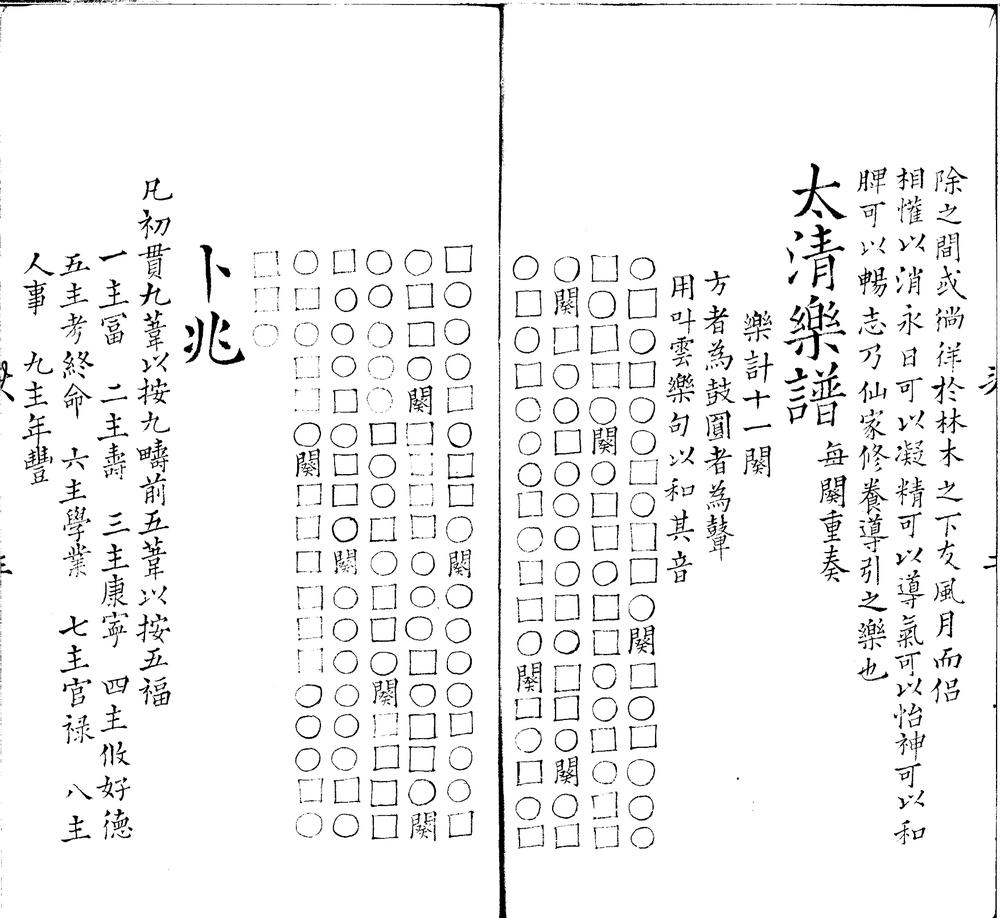 除之間或徜徉於林木之下友風月而侶
相懽以消永日可以凝精可以導氣可以怡神可以和
脾可以暢志乃仙家修養導引之樂也
太清樂譜 每闋重奏
樂計十一闋
方者為鼓圓者為鼙
用叶雲樂句以和其音
○□□□□□○□○□○闋□○□○○○
□○□□○闋□○□○□□○○□○□□
○闋□○○□○□○□□○□□○闋○□
○□○□○○○□○□□○闋□○□○□
□○○○□○□□○闋○○○□□○○□
○□○○闋□□□□○○○□○□□○闋
○○○○○□○□□○○□○闋□□□□
□○○○□○□□○闋○○○○○○□○
○□○□□○闋○□□□□□○○○□○
□□○
卜兆
凡初貫九葦以按九疇前五葦以按五福
一主冨 二主壽 三主康寧 四主攸好德
五主考終命 六主學業 七主官禄 八主
人事 九主年豐